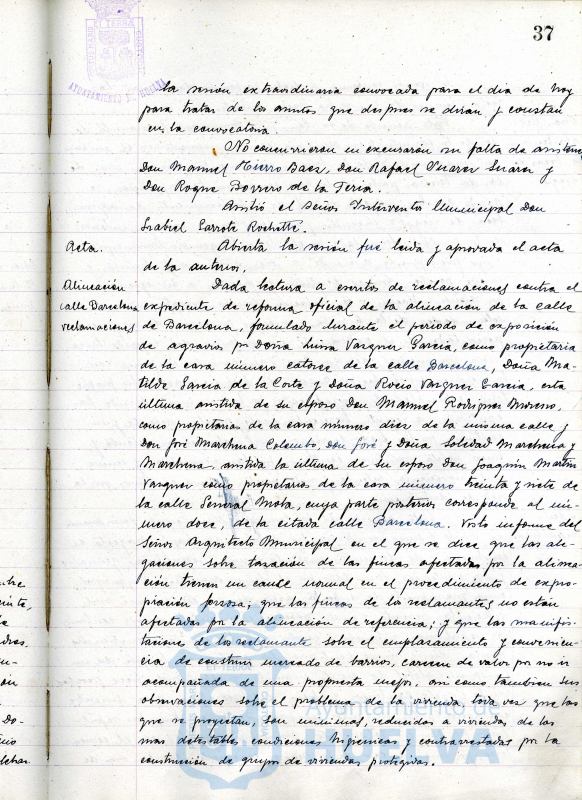 37
AYUNTAMIENTO DE HUELVA
la sesión extraordinaria convocada para el día de hoy
para tratar de los asuntos que despues se dirán y constan
en la convocatoria.
No concurrieron ni excusaron su falta de asistencia
Don Manuel Hierro Baez, Don Rafael Suarez Suárez y
Don Roque Borrero de la Feria.
Asistió el Señor Interventor Municipal Don
Isabiel Garrote Rochette.
Acta.
Abierta la sesión fué leida y aprovada el acta
de la anterior.
Alineación
calle Barcelona
reclamaciones
Dada lectura a escritos de reclamaciones contra el
expediente de reforma oficial de la alineación de la calle
de Barcelona, formulado durante el periodo de exposición
de agravios por Doña Luisa Vazquez García, como propietaria
de la casa número catorce de la calle Barcelona, Doña Ma-
tilde Garcia de la Corte y Doña Rocio Vazquez Garcia, esta
última asistida de su esposo Don Manuel Rodriguez Moreno,
como propietarias de la casa número diez de la misma calle y
Don José Marchena Colombo, Don José y Doña Soledad Marchena y
Marchena, asistida la última de su esposo Don Joaquin Martín
Vazquez como propietarios de la casa número treinta y siete de
la calle General Mola, cuya parte posterior corresponde al nú-
mero doce, de la citada calle Barcelona. Visto informe del
Señor Arquitecto Municipal en el que se dice que las ale-
gaciones sobre tasación de las fincas afectadas por la alinea-
ción tienen un cauce normal en el procedimiento de expro-
piación forzosa; que las fincas de los reclamantes no estan
afectadas por la alineación de referencia; y que las manifes-
taciones de los reclamante sobre el emplazamiento y convenien-
cia de construir mercado de barrios, carecen de valor por no ir
acompañada de una propuesta mejor, asi como tambien sus
observaciones sobre el problema de la vivienda toda vez que las
que se proyectan, son minimas, reducidas a viviendas de las
mas detestables condiciones higienicas y contrarrestadas por la
construcción de grupos de viviendas protegidas.
Ayuntamiento de
HUELVA